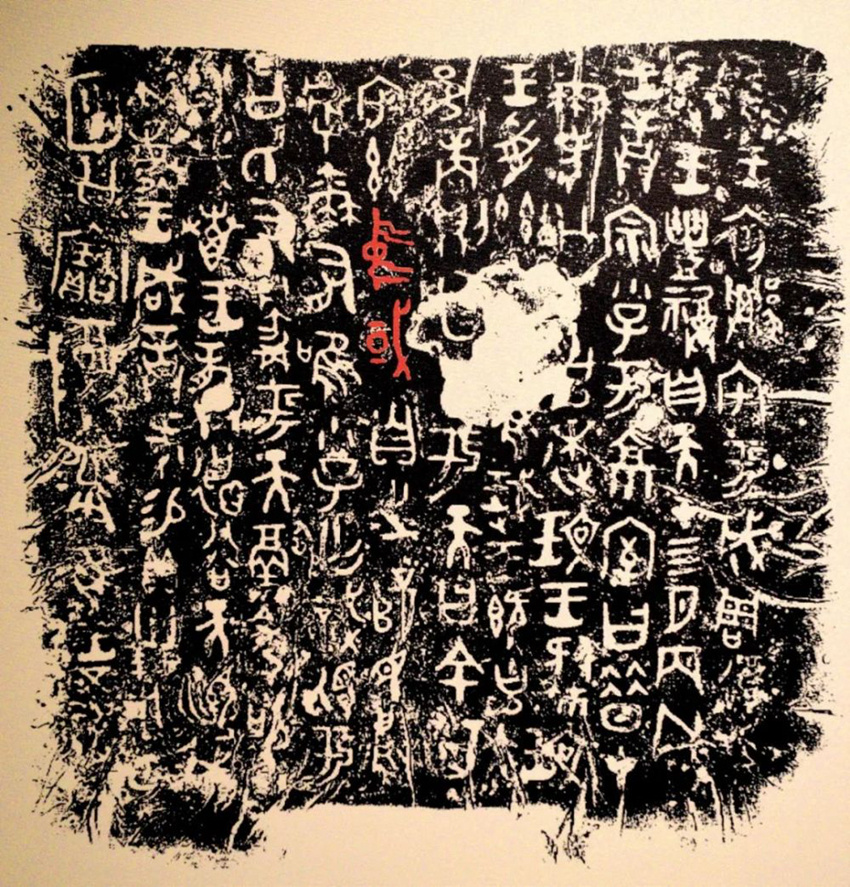 隹王初遷宅于成周復爯
王豐福自天才四月丙戌
王誥宗小子于京室曰昔才
爾考公氏克逨玟王肆玟
王受茲大令隹珷王既克大
邑商則廷告于天曰余其
宅茲中或自之乂民烏
虖爾有唯小子亡識視于
公氏有爵于天徹令敬
享哉叀王龏德谷天順我
不敏王咸誥何易貝卅朋用乍
公寶尊彝隹王五祀